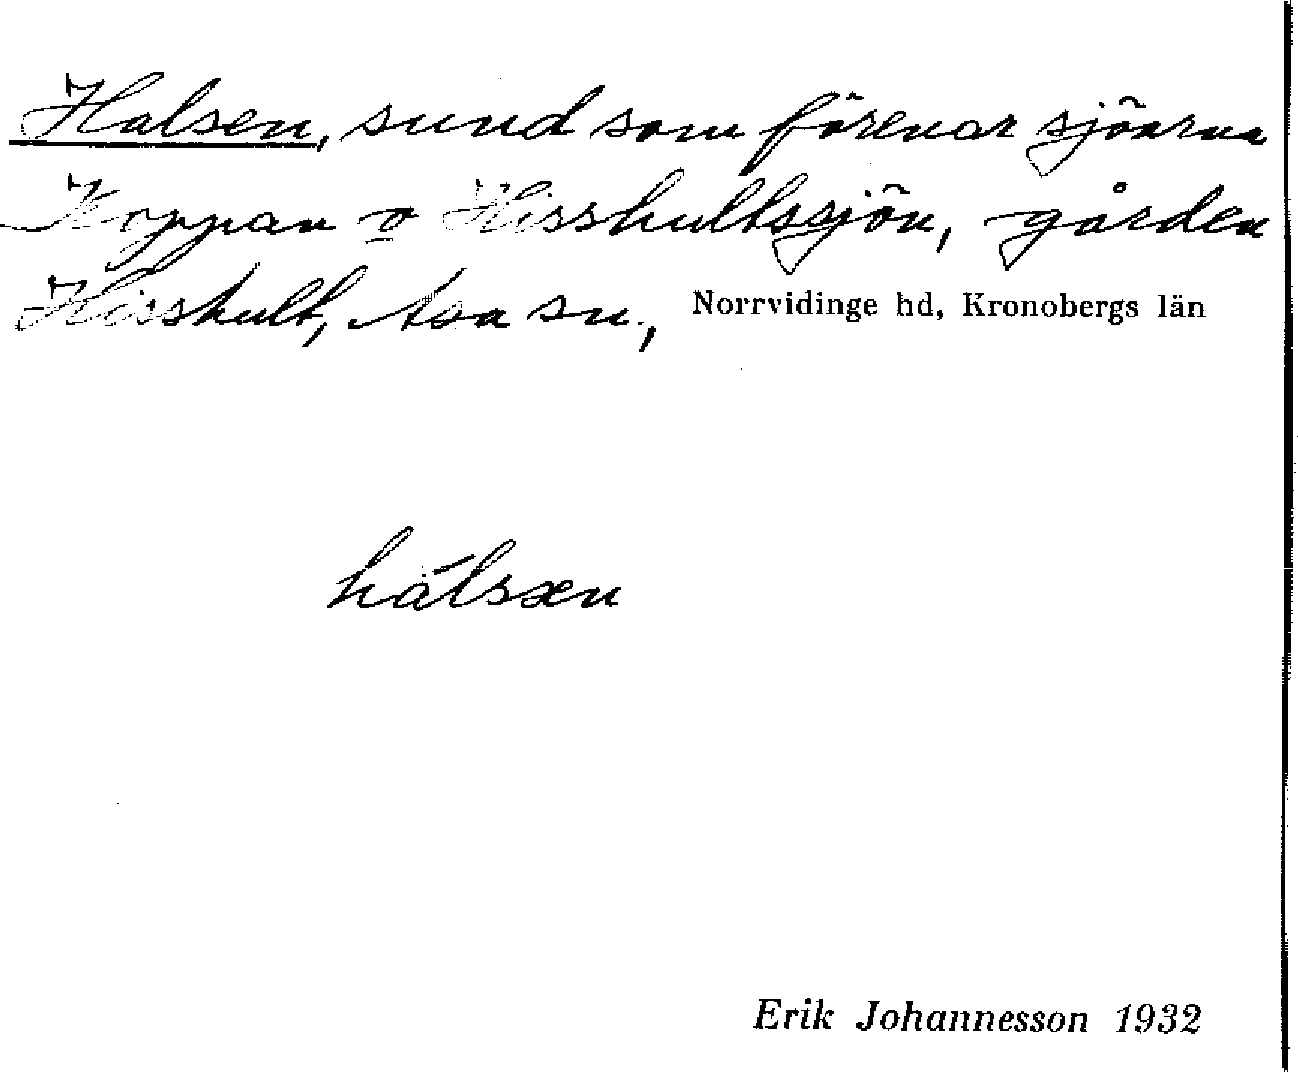 Halsen, sund som förenar sjöarna
Koppan o Hisshultssjön, gården
Hisshult, Asa sn, Norrvidinge hd, Kronobergs län
hálsæn
Erik Johannesson 1932